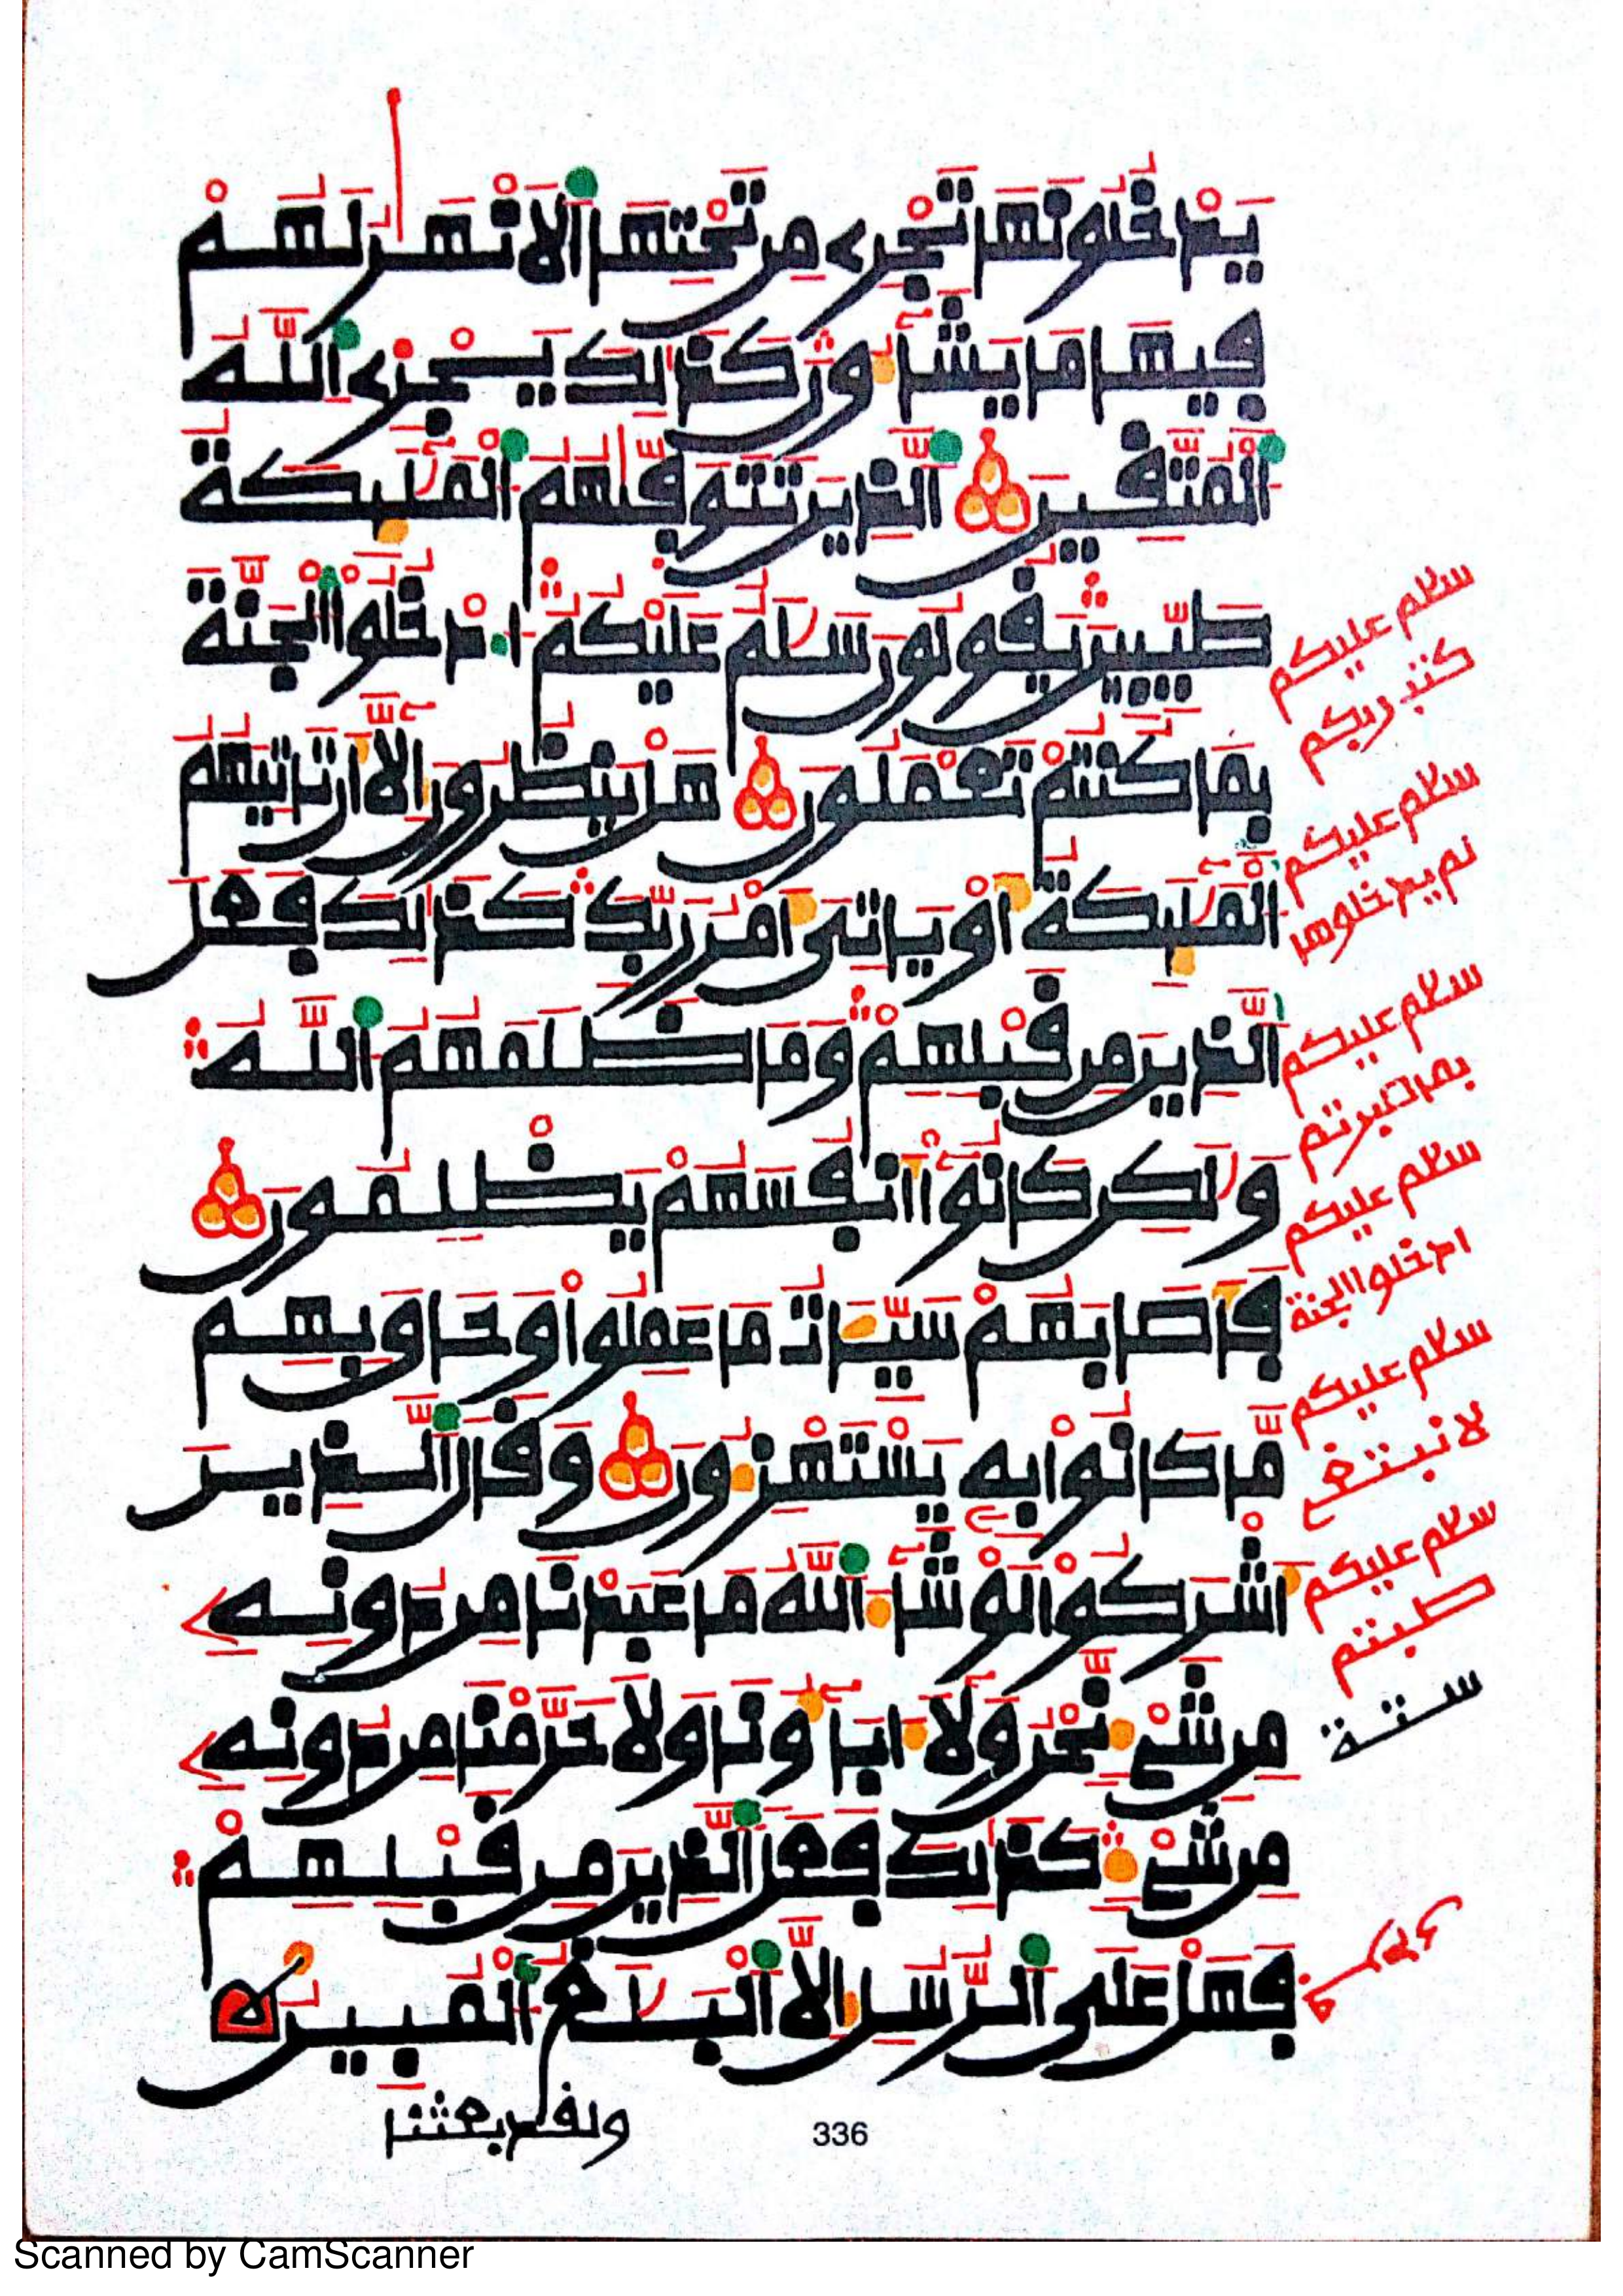 يَدْخُلُونَهَا تَجْرِے مِن تَحْتِهَا اَ۬لَانْهَٰرُ لَهُمْ
فِيهَا مَا يَشَآءُونَ كَذَٰلِكَ يَجْزِے اِ۬للَّهُ
اُ۬لْمُتَّقِينَ اَ۬لذِينَ تَتَوَفَّيٰهُمُ اُ۬لْمَلَٰٓئِكَةُ
طَيِّبِينَ يَقُولُونَ سَلَٰمٌ عَلَيْكُمُ اُ۟دْخُلُواْ اُ۬لْجَنَّةَ
بِمَا كُنتُمْ تَعْمَلُونَ هَلْ يَنظُرُونَ إِلَّآ أَن تَاتِيَهُمُ
اُ۬لْمَلَٰٓئِكَةُ أَوْ يَاتِيَ أَمْرُ رَبِّكَ كَذَٰلِكَ فَعَلَ
اَ۬لذِينَ مِن قَبْلِهِمْ وَمَا ظَلَمَهُمُ اُ۬للَّهُ
وَلَٰكِن كَانُوٓاْ أَنفُسَهُمْ يَظْلِمُونَ
فَأَصَابَهُمْ سَيِّـَٔاتُ مَا عَمِلُواْ وَحَاقَ بِهِم
مَّا كَانُواْ بِهِۦ يَسْتَهْزِءُونَ وَقَالَ اَ۬لذِينَ
أَشْرَكُواْ لَوْ شَآءَ اَ۬للَّهُ مَا عَبَدْنَا مِن دُونِهِۦ
مِن شَےْءٖ نَّحْنُ وَلَآ ءَابَآؤُنَا وَلَا حَرَّمْنَا مِن دُونِهِۦ
مِن شَےْءٖ كَذَٰلِكَ فَعَلَ اَ۬لذِينَ مِن قَبْلِهِمْ
فَهَلْ عَلَى اَ۬لرُّسُلِ إِلَّا اَ۬لْبَلَٰغُ اُ۬لْمُبِينُ
ولقد بعثنا
سلم عليكم
كتب ربكم
سلم عليكم
لم يدخلوها
سلم عليكم
بما صبرتم
سلم عليكم
ادخلوا الجنة
سلم عليكم
لا نبتغے
سلم عليكم
طبتم
ستة
336
Scanned by CamScanner